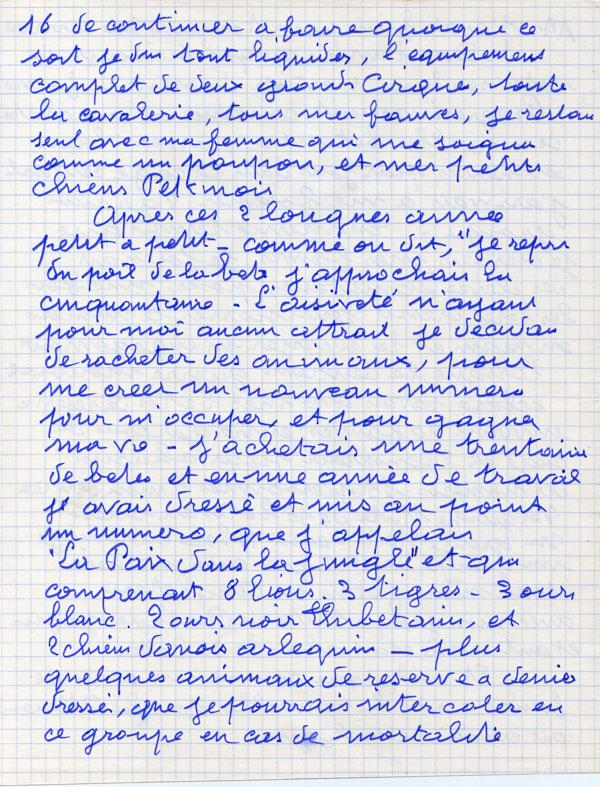 16 de continuer a boire quoique ce
soit je dus tout liquider, l'equipement
complet de deux grands Cirque, toute
la cavalerie, tous mes fauves, je restau
seul avec ma femme qui me soigna
comme un poupon, et mes petits
chiens Pekinois
Apres ces 2 longues année
petit a petit - comme on dit, "je repri
du poil de la bete j'approchais la
cinquantaine - L'oisiveté n'ayant
pour moi aucun attrait je decidai
de racheter des animaux, pour
me creer un nouveau numero
pour m'occuper, et pour gagner
ma vie - j'achetais une trentaine
de betes et en une année de travail
j'avais dressé et mis au point
un numero, que j'appelais
"La Paix dans la jungle" et qui
comprenait 8 lions. 3 tigres - 3 ours
blanc. 2 ours noir Thibetains, et
2 chiens danois arlequin - plus
quelques animaux de reserve a demie
dressés, que je pourrais intercaler en
ce groupe en cas de mortalité